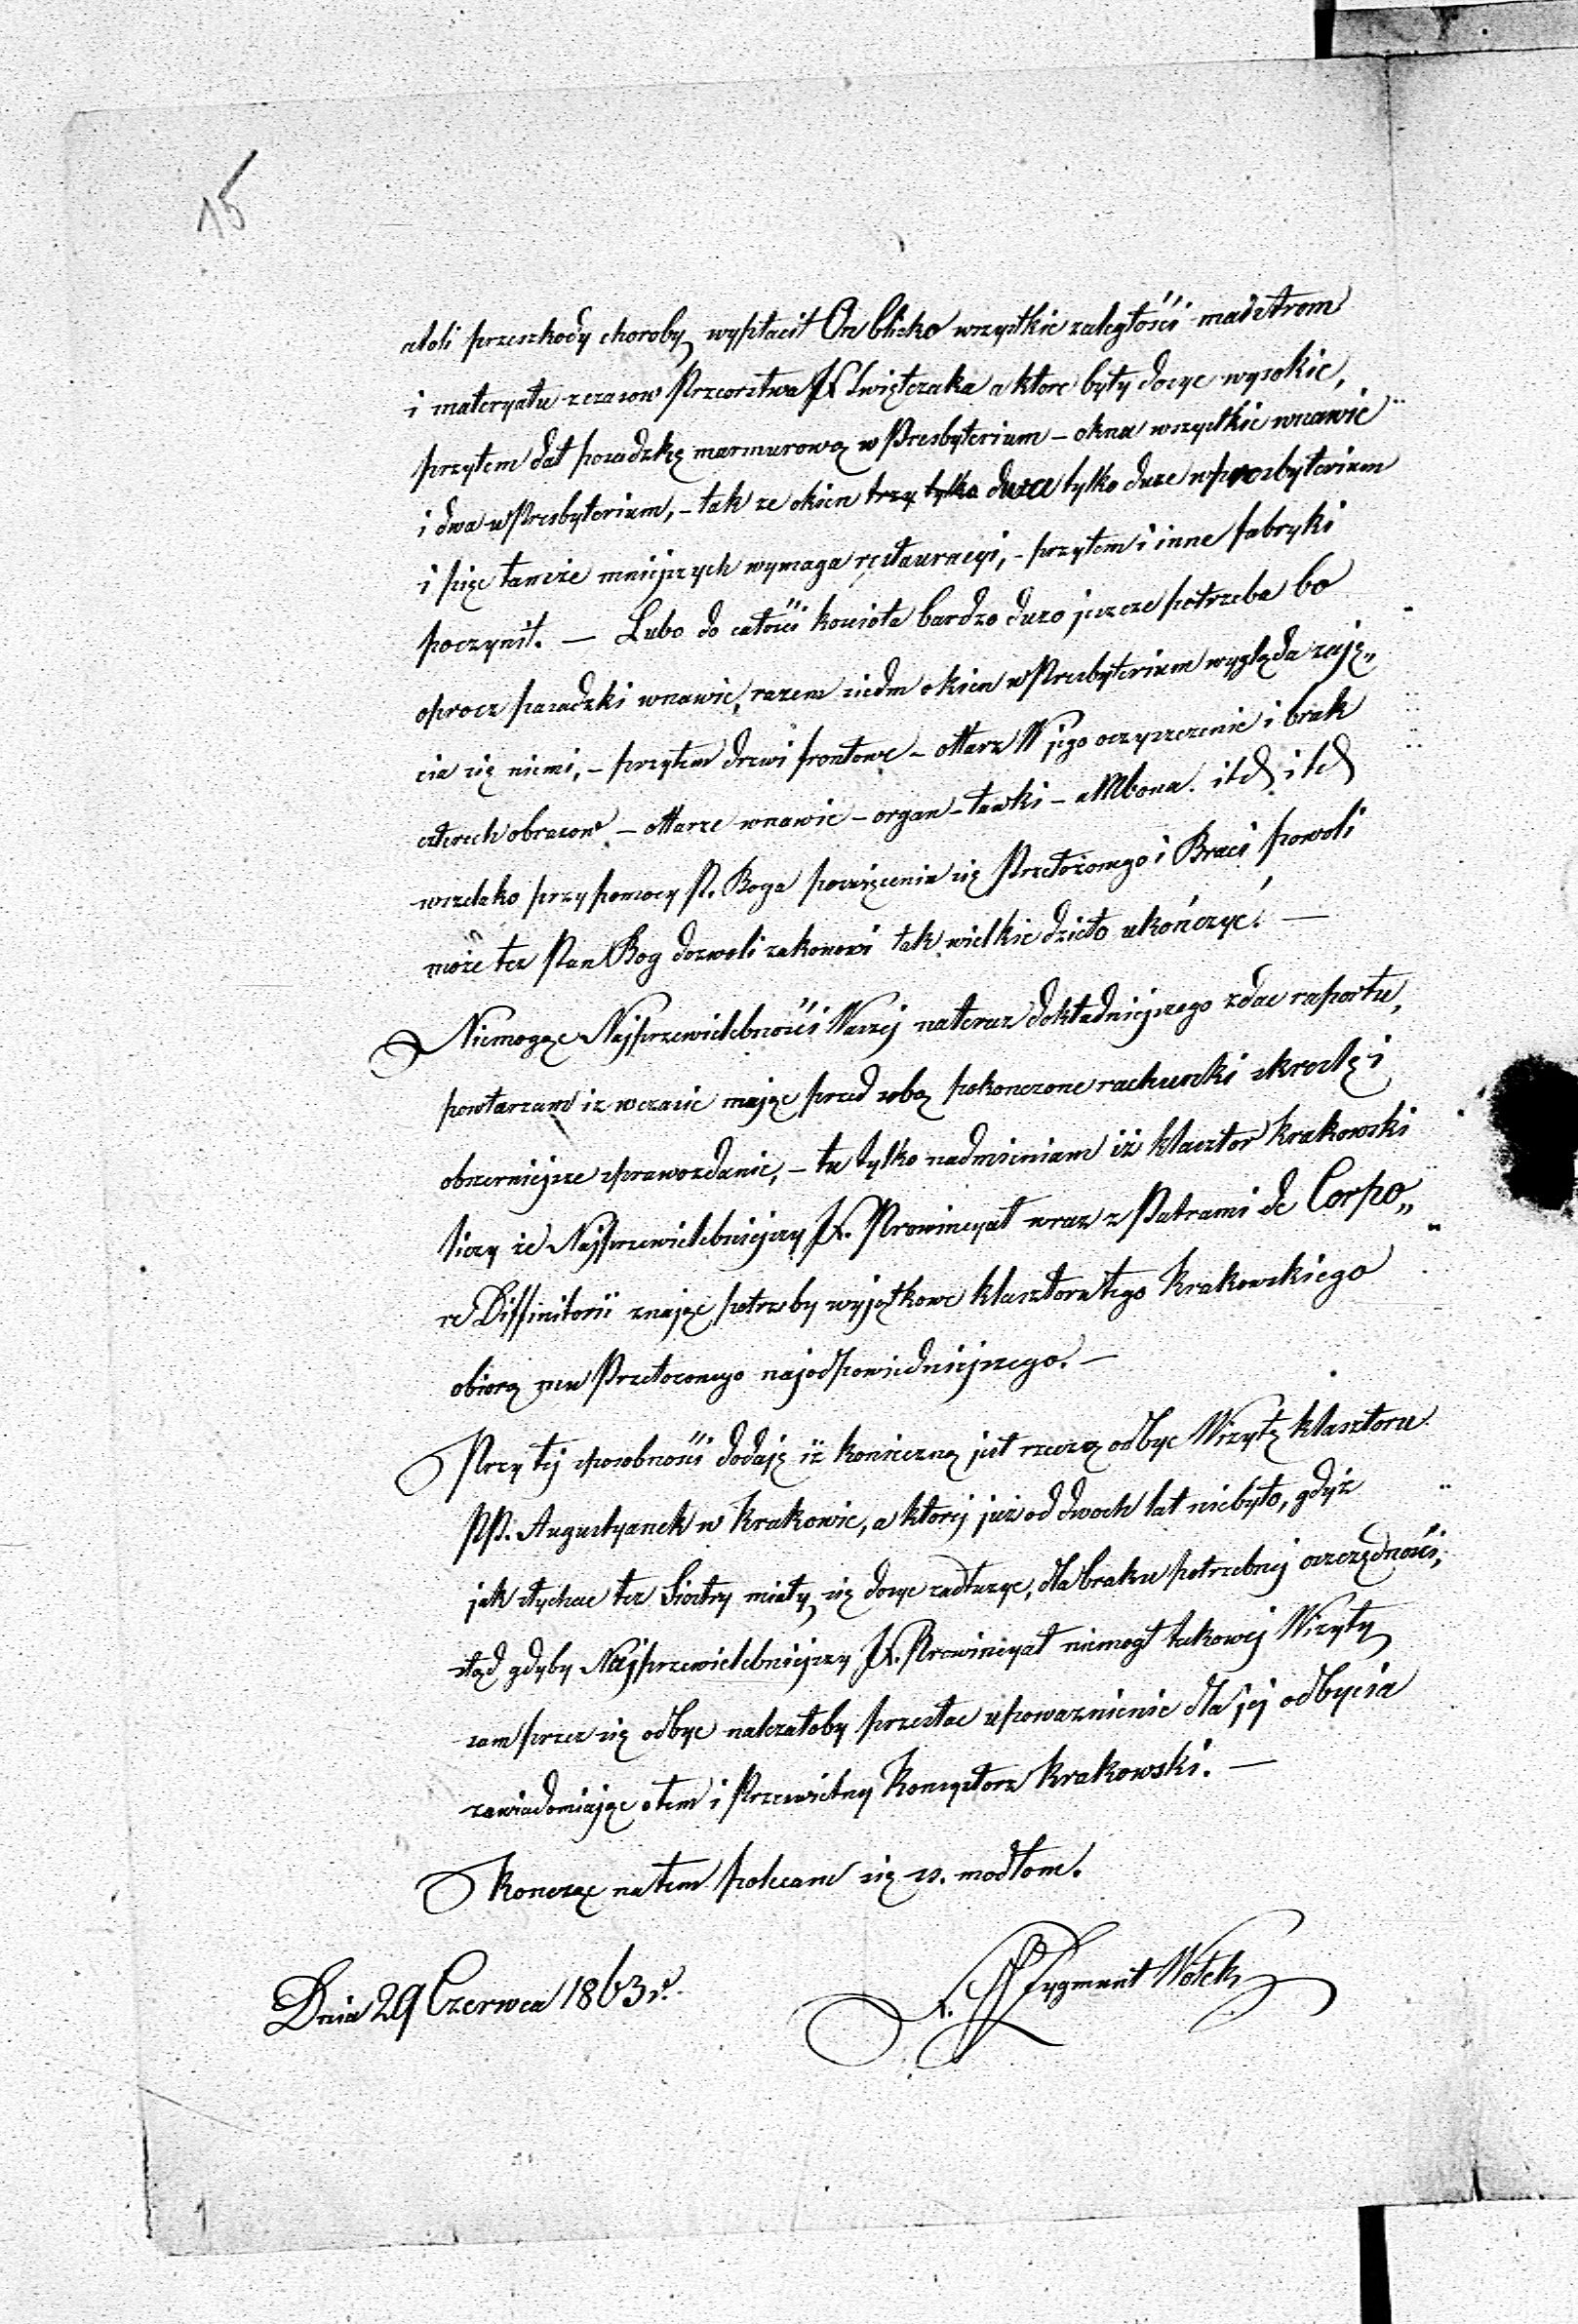 15
atoli przeszkody choroby wypłacił On blisko wszystkie zaległości maistrom
i materyału z czasow Przeorstwa X Swiętczaka a ktore były dosyc wysokie,
przytem dał posadzkę marmurową w Presbyterium – okna wszystkie wnawie
i dwa w Presbyterium, – tak ze okien trzy tylko duze tylko duze w presbyterium
i pięc tamże mniejszych wymaga restauracyi, – przytem i inne fabryki
poczynił. — Lubo do całości kosciola bardzo duzo jeszcze potrzeba bo
oprocz posadzki wnawie, razem siedm okien w Presbyterium wygląda zaję„
cia się niemi, – przytem drzwi frontowe – ołtarz W jego oczyszczenie i brak
czterech obrazow – ołtarze wnawie – organ – ławki – aMbona. itd itd
wszelako przy pomocy P. Boga poswięcenia się Przełożonego i Braci powoli
może tez Pan Bog dozwoli zakonowi tak wielkie dzieło ukończyc. —
Niemogąc Najprzewielebności Waszej nateraz dokładniejszego zdac raportu,
powtarzam iz wczasie mając przed sobą pokonczone rachunki skreslę i
obszerniejsze sprawozdanie, – tu tylko nadmieniam iż klasztor Krakowski
liczy że Najprzewielebniejszy X. Prowincyał wraz z Patrami de Corpo„
re Diffinitorii znając potrzeby wyjątkowe klasztoru tego Krakowskiego
obiorą mu Przełozonego najodpowiedniejszego. —
Przy tej sposobności dodaję iż konieczną jest rzeczą odbyc Wizytę klasztoru
PP. Augustyanek w Krakowie, a ktorej już od dwoch lat niebyło, gdyż
jak słychac tez Siostry miały się dosyc zadłuzyc, dla braku potrzebnej oszczędności,
stąd gdyby Najprzewielebniejszy X. Prowincyał niemogł takowej Wizyty
sam przez się odbyc nalezałoby przesłac upowaznienie dla jej odbycia
zawiadomiając otem i Przeswietny Konsystorz Krakowski. —
Koncząc na tem polecam się ss. modłom.
Dnia 29 Czerwca 1863 r.
X. Zygmunt Wołek
1